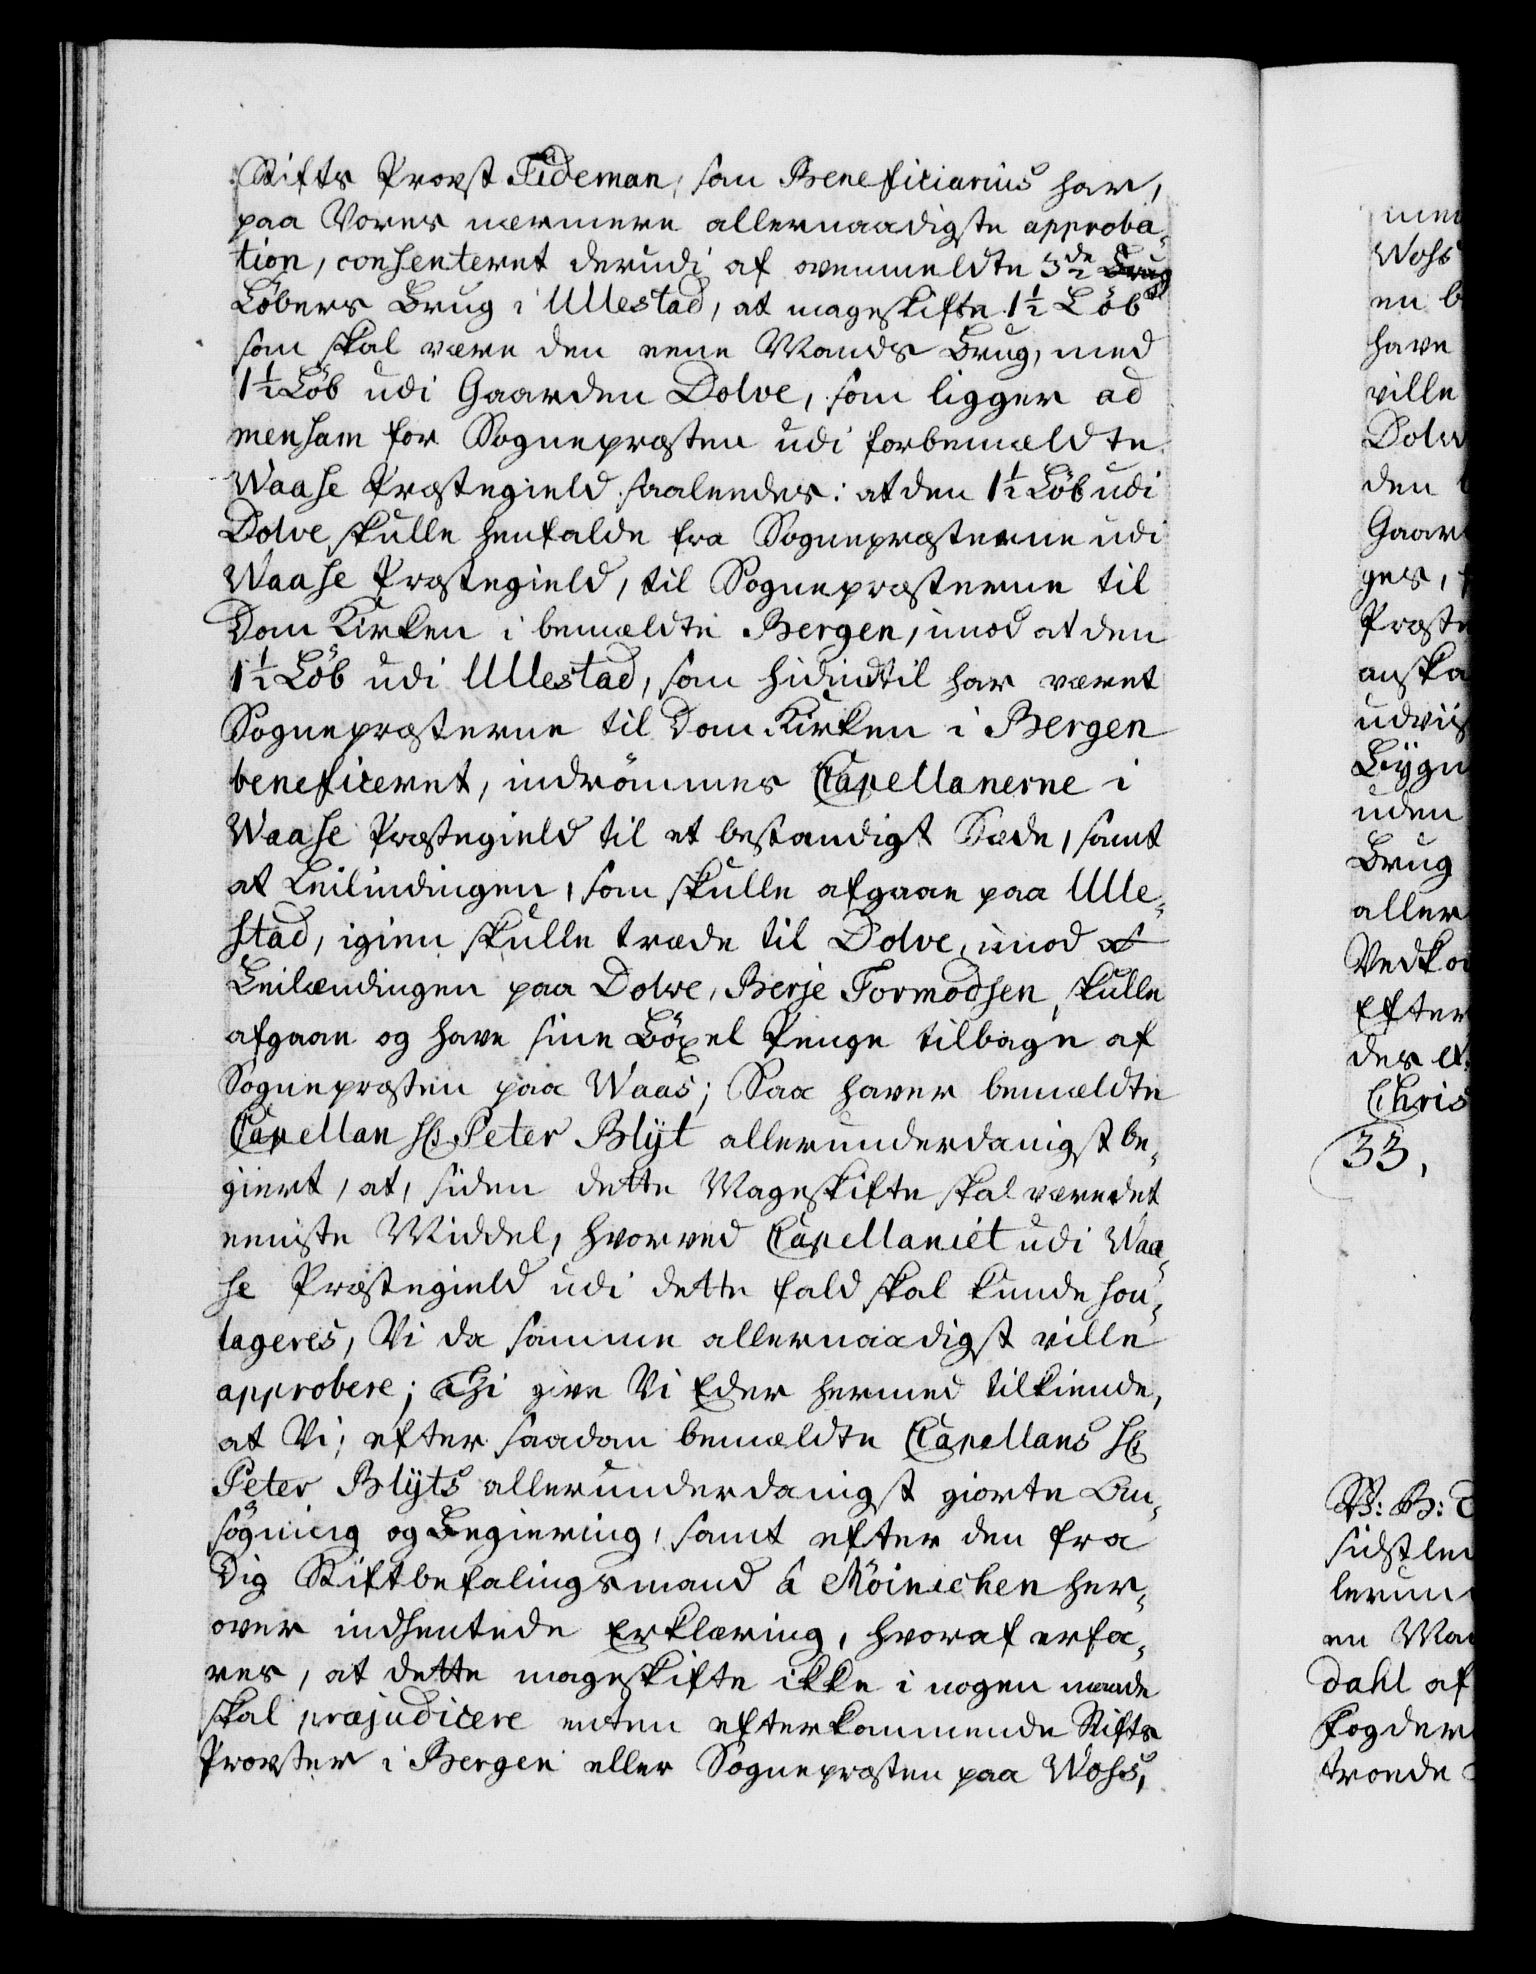 Stifts Provst Tideman, som Beneficiarius har,
paa Vores nærmere allernaadigste approba-
tion, consenteret derudi af ovenmeldte 3de
Löbers Brug i Ullestad, at mageskifte 1½ Löb
som skal være den eene Mands Brug, med
1½ Löb udi Gaarden Dolve, som ligger ad
mensam for Sognepræsten udi forbemældte
Waase Præstegield saaledes: at den 1½ Löb udi
Dolve skulle henfalde fra Sognepræsterne udi
Waase Præstegield, til Sognepræsterne til
Dom Kirken i bemældte Bergen, imod at den
1½ Löb udi Ullestad, som hidindtil har været
Sognepræsterne til Dom Kirken i Bergen
beneficeret, indrömmes Capellanerne i
Waase Præstegield til et bestandigt Sæde, samt
at Leilindingen, som skulle afgaae paa Ulle-
stad, igien skulle træde til Dolve, imod at
Leilændingen paa Dolve, Berje Tormodsen, skulle
afgaae og have sine Böxel Penge tilbage af
Sognepræsten paa Waas; Saa haver bemældte
Capellan Hr Peter Blÿt allerunderdanigst be-
giert, at, siden dette Mageskifte skal være det
eeniste Middel, hvorved Capellaniet udi Waa-
se Præstegield udi dette fald skal kunde sou-
lageres, Vi da samme allernaadigst ville
approbere; Thi give Vi Eder hermed tilkiende,
at Vi, efter saadan bemældte Capellans Hr
Peter Blÿts allerunderdanigst giorte An-
sögning og Begiering, samt efter den fra
Dig Stiftbefalingsmand à Möinichen her-
over indhentede Erklæring, hvoraf erfa-
res, at dette mageskifte ikke i nogen maade
skal præjudicere enten efterkommende Stifts
Provster i Bergen eller Sognepræsten paa Woss,
Woss
have
ville
den
ges,
uden
Brug
33,
sidstlen
dahl af
troede